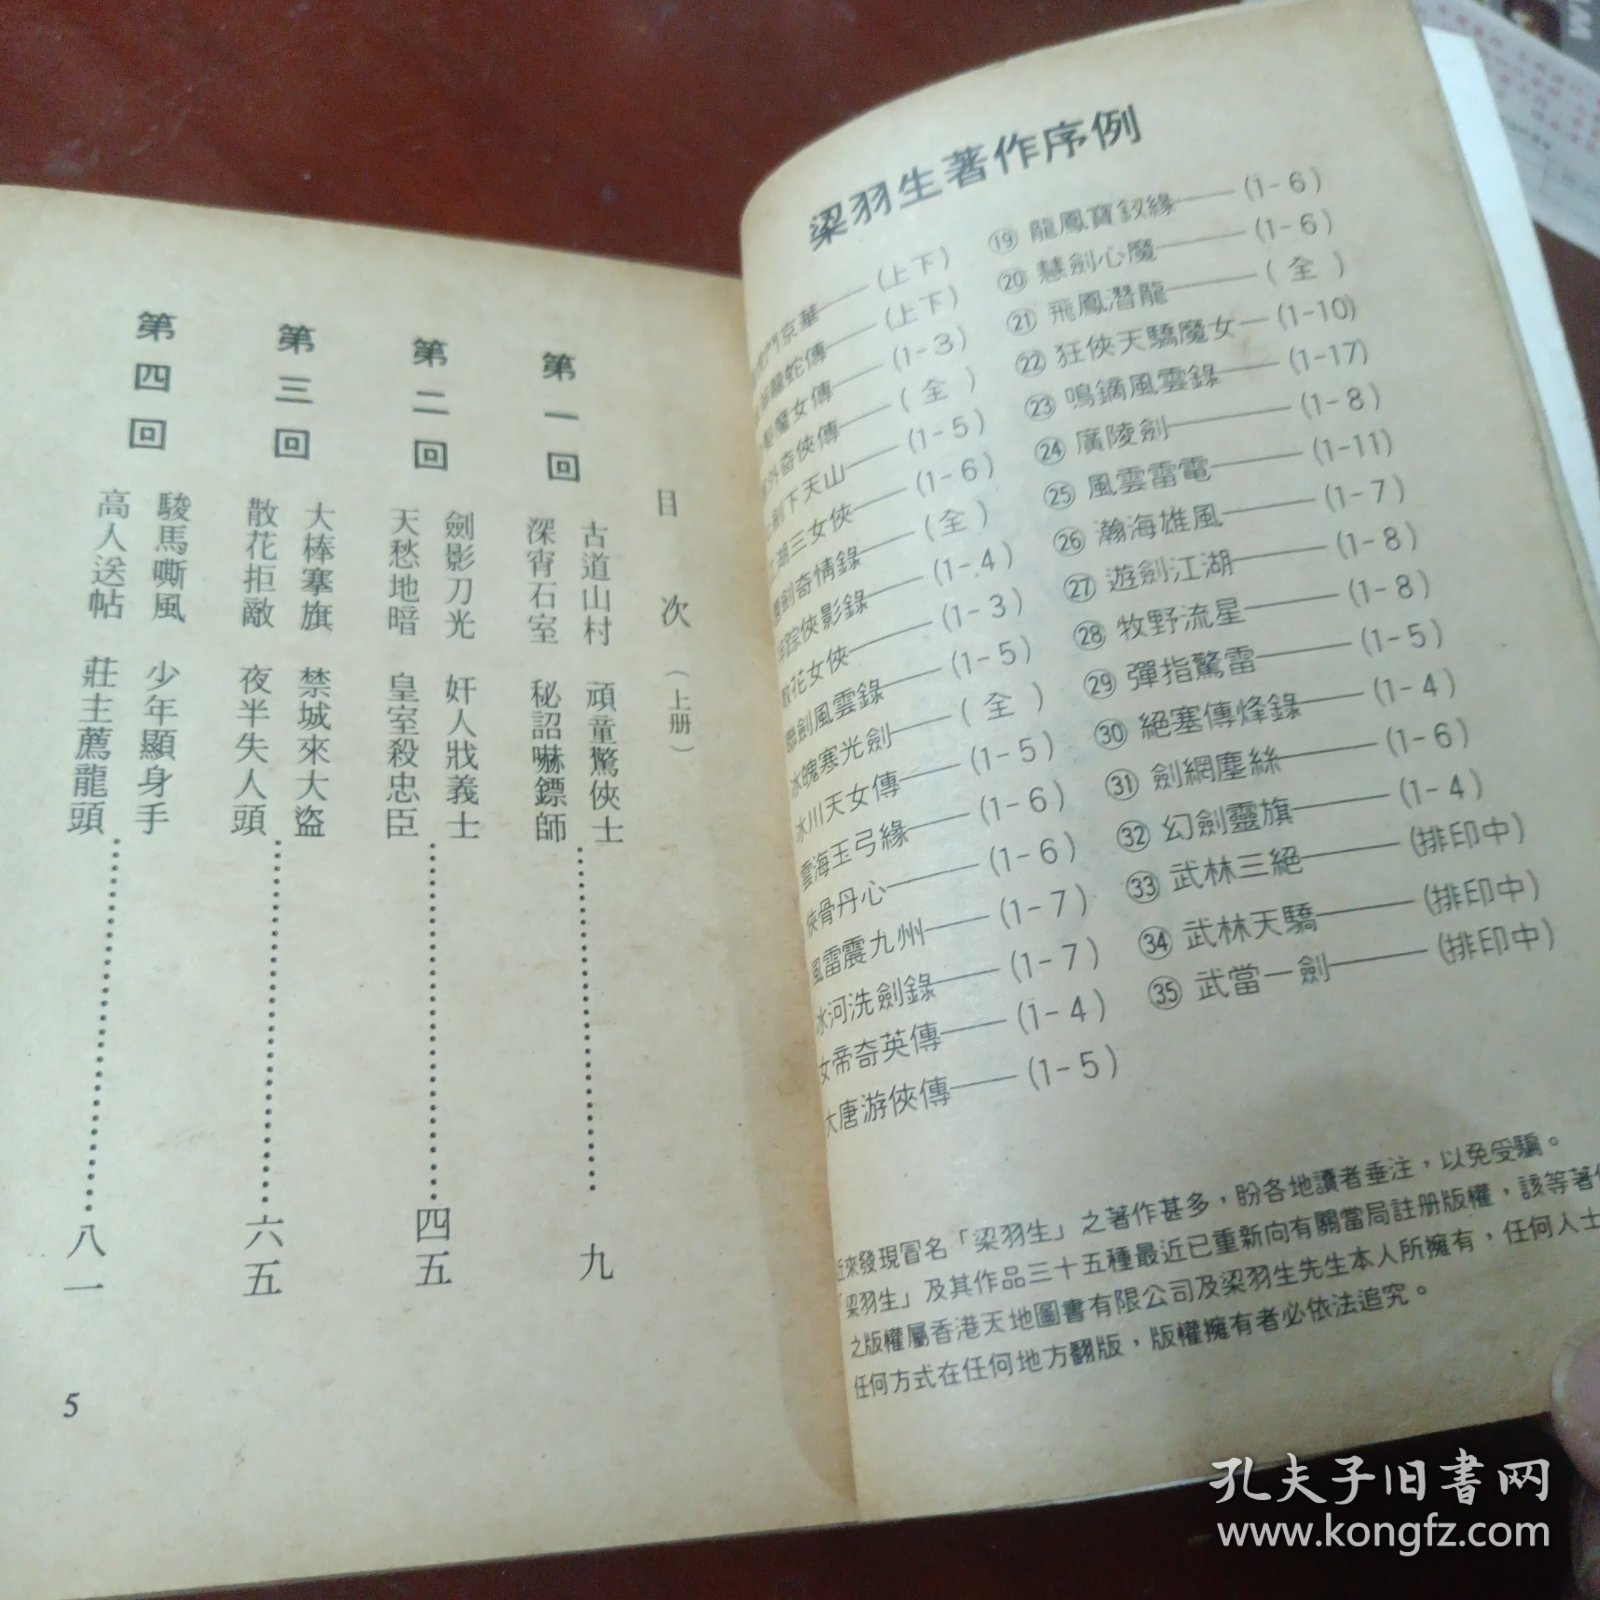 梁羽生著作序例
門京華——(上下)
龍蛇傳——(上下)
魔女傳——(1-3)
外奇俠傳——(全)
劍下天山——(1-5)
湖三女俠——(1-6)
劍奇情錄——(全)
踪俠影錄——(1-4)
散花女俠——(1-3)
聯劍風雲錄——(1-5)
冰魄寒光劍——(全)
冰川天女傳——(1-5)
雲海玉弓緣——(1-6)
俠骨丹心——(1-6)
風雷震九州——(1-7)
冰河洗劍錄——(1-7)
女帝奇英傳——(1-4)
大唐游俠傳——(1-5)
⑲ 龍鳳寶釵緣——(1-6)
⑳ 慧劍心魔——(1-6)
㉑ 飛鳳潛龍——(全)
㉒ 狂俠天驕魔女—(1-10)
㉓ 鳴鏑風雲錄——(1-17)
㉔ 廣陵劍——(1-8)
㉕ 風雲雷電——(1-11)
㉖ 瀚海雄風——(1-7)
㉗ 遊劍江湖——(1-8)
㉘ 牧野流星——(1-8)
㉙ 彈指驚雷——(1-5)
㉚ 絕塞傳烽錄——(1-4)
㉛ 劍網塵絲——(1-6)
㉜ 幻劍靈旗——(1-4)
㉝ 武林三絕——(排印中)
㉞ 武林天驕——(排印中)
㉟ 武當一劍——(排印中)
近來發現冒名「梁羽生」之著作甚多，盼各地讀者垂注，以免受騙。
「梁羽生」及其作品三十五種最近已重新向有關當局註册版權，該等著作
之版權屬香港天地圖書有限公司及梁羽生先生本人所擁有，任何人士
任何方式在任何地方翻版，版權擁有者必依法追究。
目次（上册）
第一回 古道山村 頑童驚俠士
深宵石室 秘詔嚇鏢師……九
第二回 劍影刀光 奸人戕義士
天愁地暗 皇室殺忠臣……四五
第三回 大棒搴旗 禁城來大盜
散花拒敵 夜半失人頭……六五
第四回 駿馬嘶風 少年顯身手
高人送帖 莊主薦龍頭……八一
5
孔夫子旧书网
www.kongfz.com